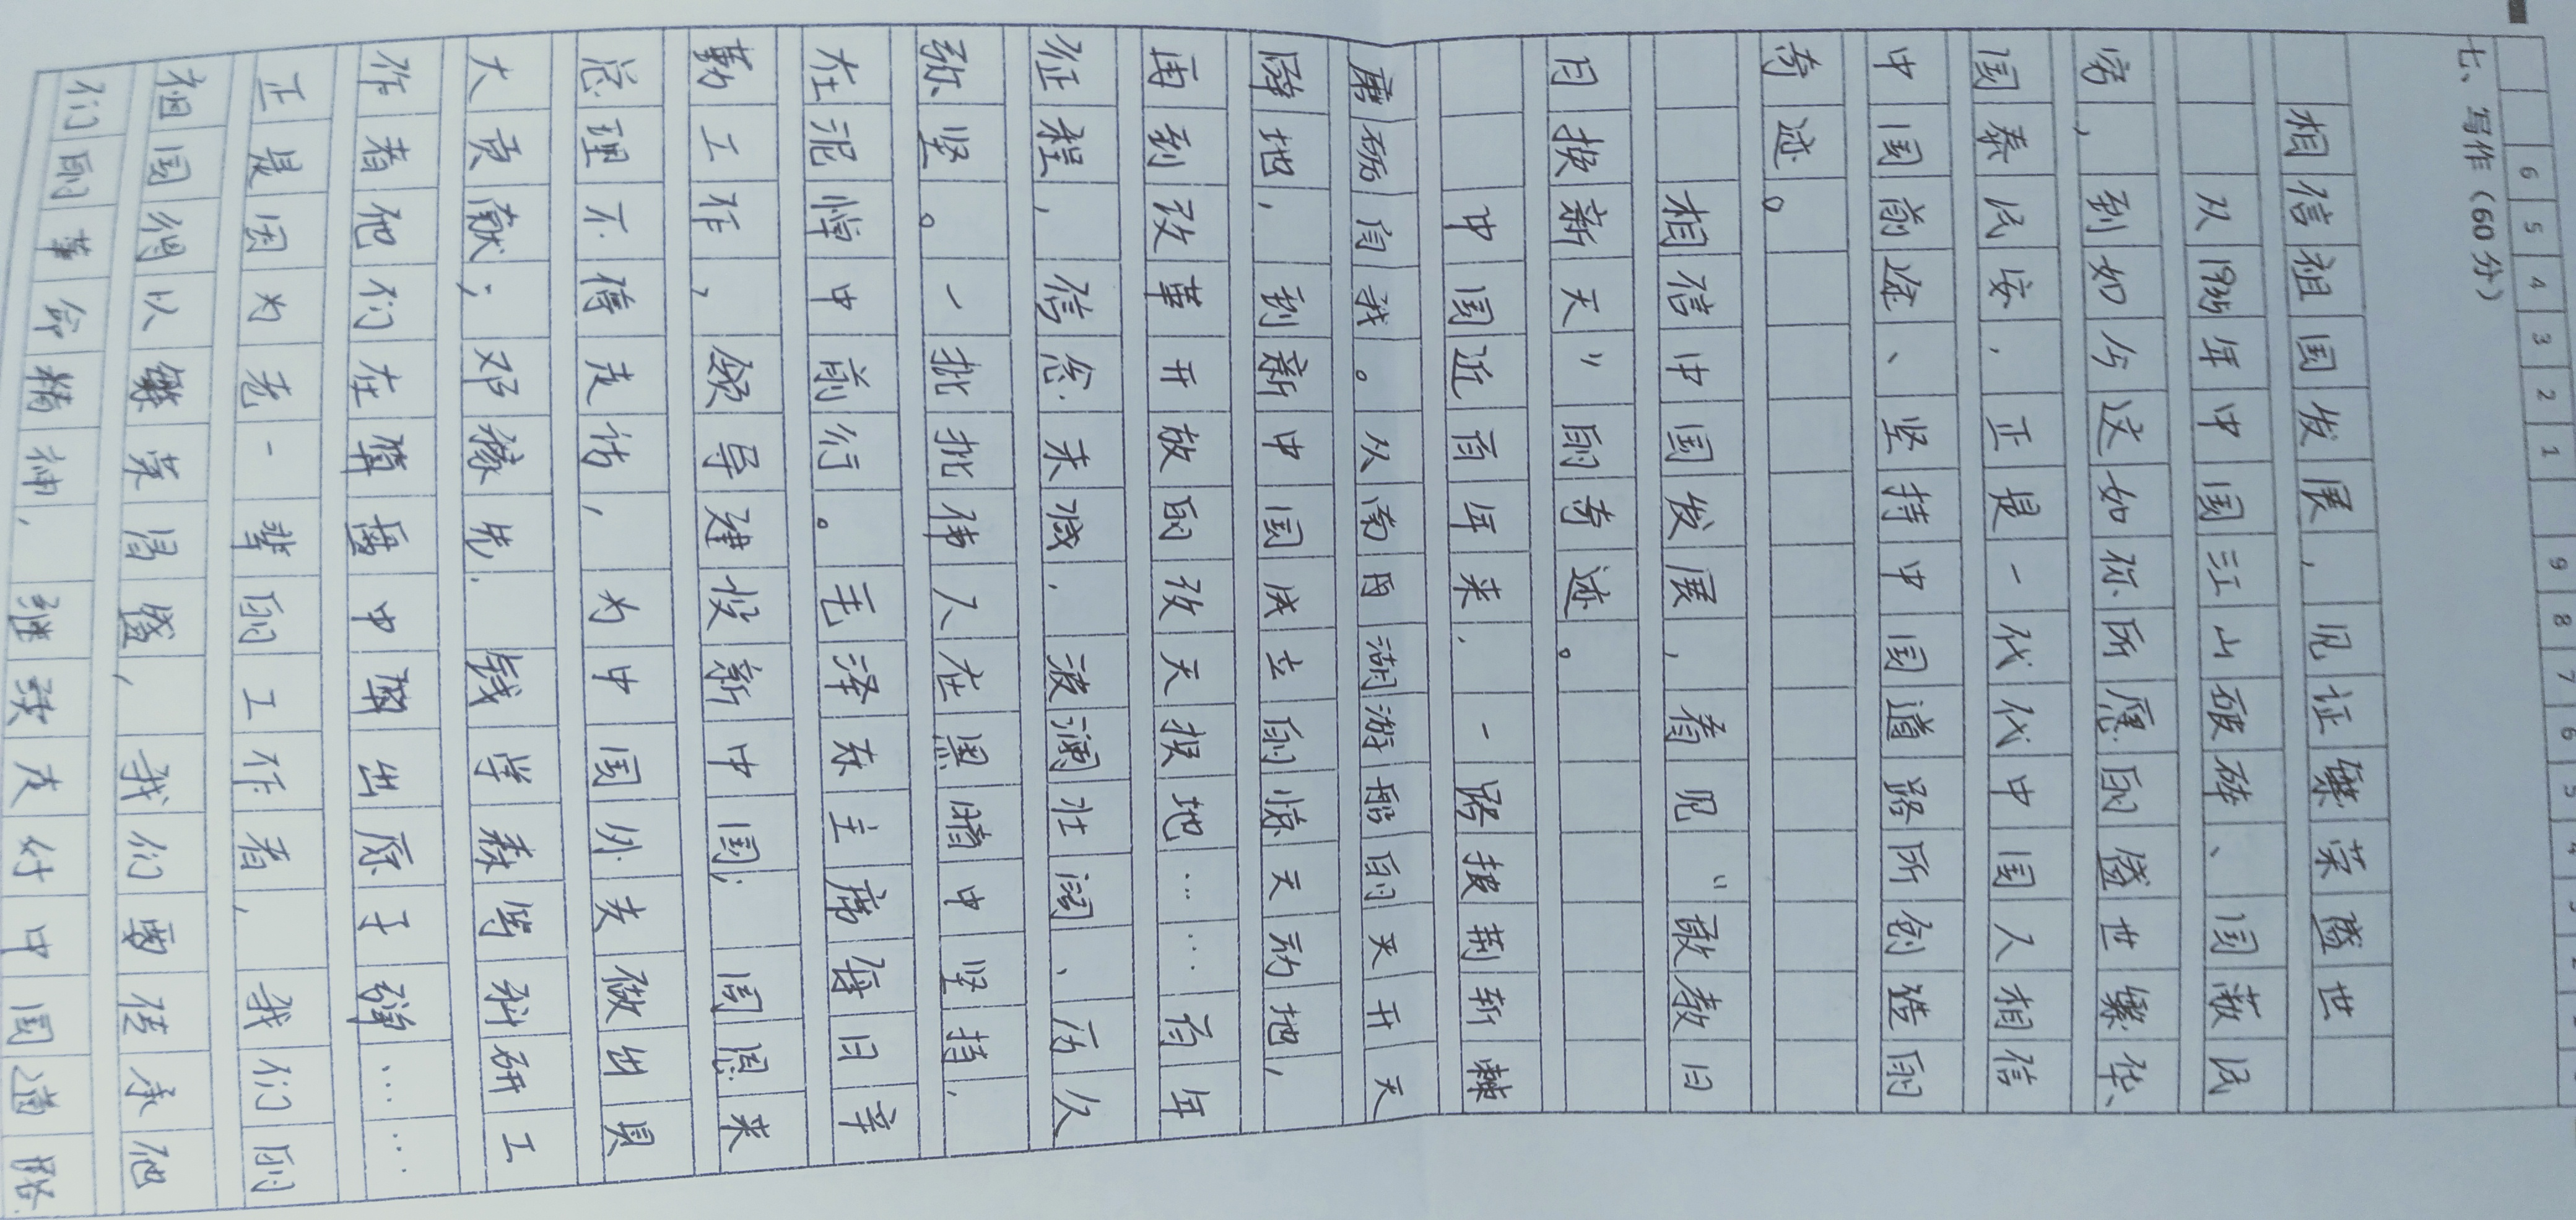 6 5 4 3 2 1 9 8 7 6 5 4 3 2
七、写作（60分）
相信祖国发展，见证繁荣盛世
从1949年中国江山破碎、国敝民
穷，到如今这如你所愿的盛世繁华、
国泰民安，正是一代代中国人相信
中国前途、坚持中国道路所创造的
奇迹。
相信中国发展，看见“敢教日
月换新天”的奇迹。
中国近百年来，一路披荆斩棘
磨砺自我。从南田湖游船的开天
辟地，到新中国成立的惊天动地，
再到改革开放的改天换地……百年
征程，信念未减，波澜壮阔、历久
弥坚。一批批伟人在黑暗中坚持，
在泥悼中前行。毛泽东主席每日辛
勤工作，领导建设新中国；周恩来
总理不停走访，为中国外交做出具
大贡献；邓稼先，钱学森等科研工
作者他们在磨砺中研出原子弹……
正是因为老一辈的工作者，我们的
祖国得以繁荣昌盛，我们要传承他
们的革命精神，继续走好中国道路